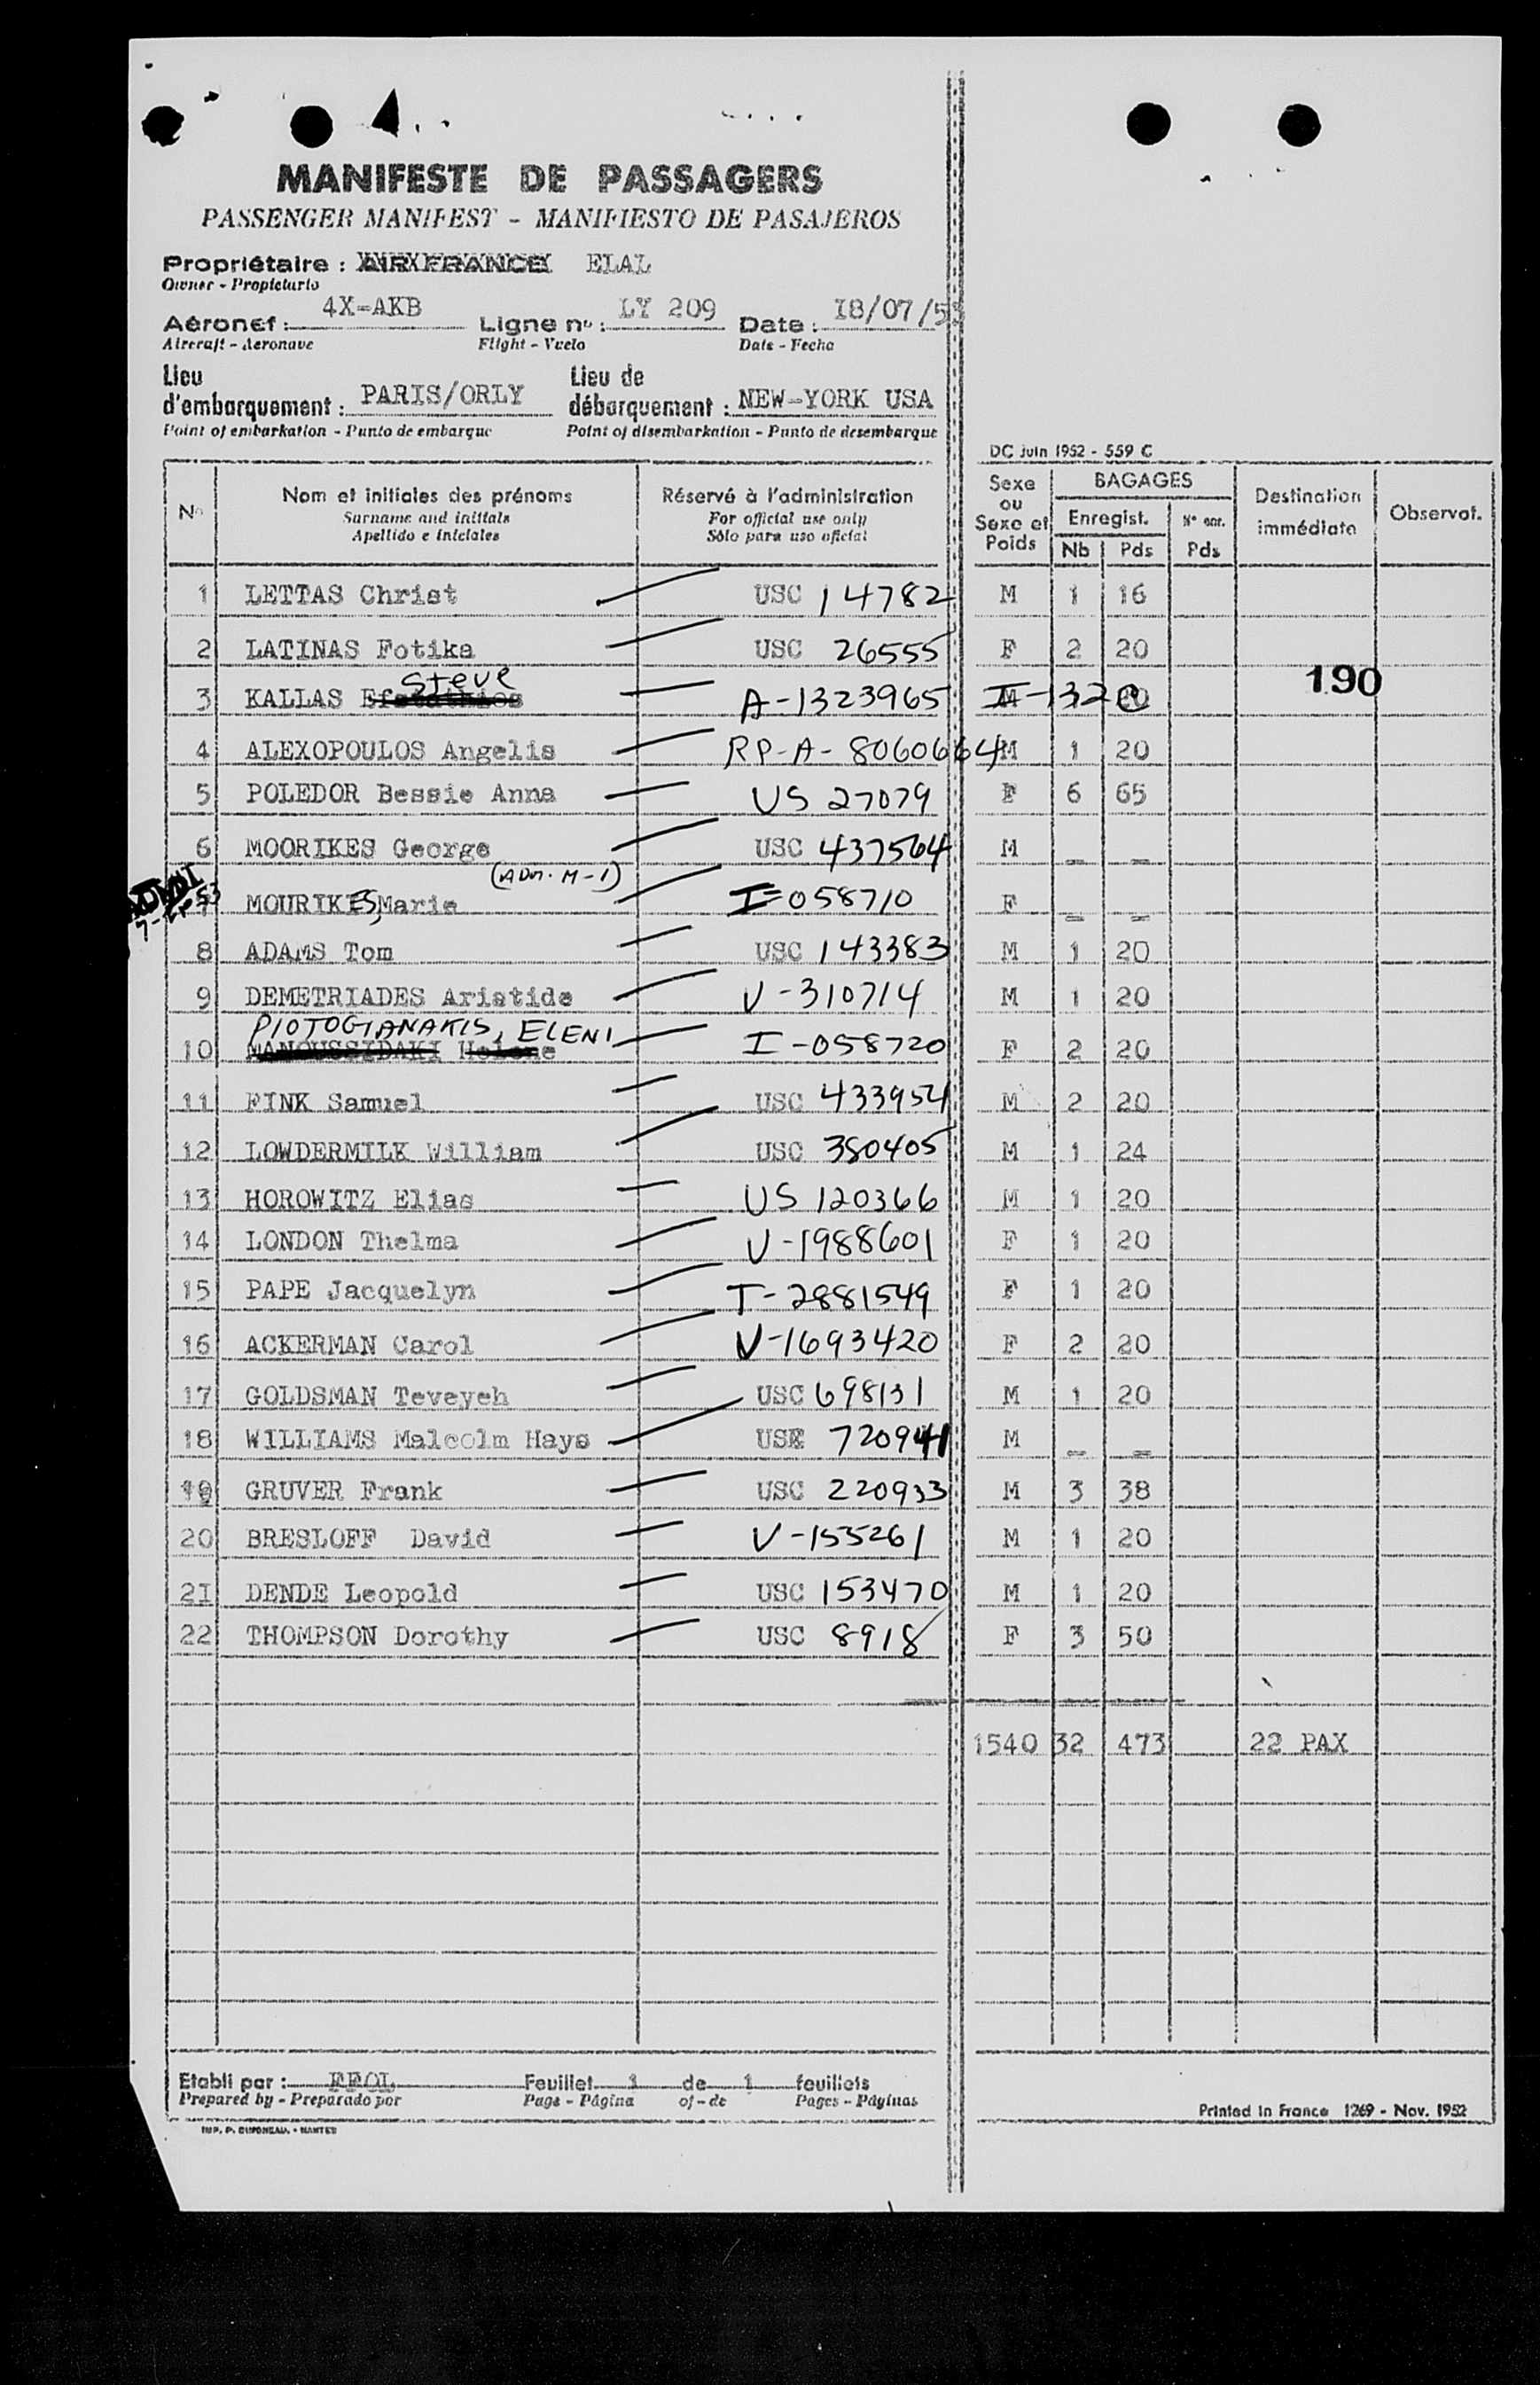 MANIFESTE DE PASSAGERS
PASSENGER MANIFEST - MANIFIESTO DE PASAJEROS
Propriétaire : AIR FRANCE ELAL
Owner - Propietario
Aéronef : 4X-AKB Ligne n° : LY 209 Date : I8/07/53
Aircraft - Aeronave Flight - Vuelo Date - Fecha
Lieu d'embarquement : PARIS/ORLY Lieu de débarquement : NEW-YORK USA
Point of embarkation - Punto de embarque Point of disembarkation - Punto de desembarque
DC Juin 1952 - 559 C
N° Nom et initiales des prénoms Réservé à l'administration Sexe ou Sexe et Poids BAGAGES Destination immédiate Observat.
Surname and initials For official use only Enregist. N° enr.
Apellido e iniciales Sólo para uso oficial Nb Pds Pds
1 LETTAS Christ USC 14782 M 1 16
2 LATINAS Fotika USC 26555 F 2 20
Steve 190
3 KALLAS Efstathios A-1323965 I-1320 M 20
4 ALEXOPOULOS Angelis RP-A-8060664 M 1 20
5 POLEDOR Bessie Anna US 27079 F 6 65
6 MOORIKES George USC 437564 M _ _
(ADM. M-1)
7-18-53
MOURIKES, Marie I-058710 F _ _
8 ADAMS Tom USC 143383 M 1 20
9 DEMETRIADES Aristide V-310714 M 1 20
PIOTOGIANAKIS, ELENI
10 MANOUSSIDAKI Helene I-058720 F 2 20
11 FINK Samuel USC 433954 M 2 20
12 LOWDERMILK William USC 380405 M 1 24
13 HOROWITZ Elias US 120366 M 1 20
14 LONDON Thelma V-1988601 F 1 20
15 PAPE Jacquelyn T-2881549 F 1 20
16 ACKERMAN Carol V-1693420 F 2 20
17 GOLDSMAN Teveyeh USC 698131 M 1 20
18 WILLIAMS Malcolm Hays USC 720941 M _ _
19 GRUVER Frank USC 220933 M 3 38
20 BRESLOFF David V-155261 M 1 20
2I DENDE Leopold USC 153470 M 1 20
22 THOMPSON Dorothy USC 8918 F 3 50
1540 32 473 22 PAX
Etabli par : Feuillet 1 de 1 feuillets
Prepared by - Preparado por Page - Página of - de Pages - Páginas
Printed in France 1269 - Nov. 1952